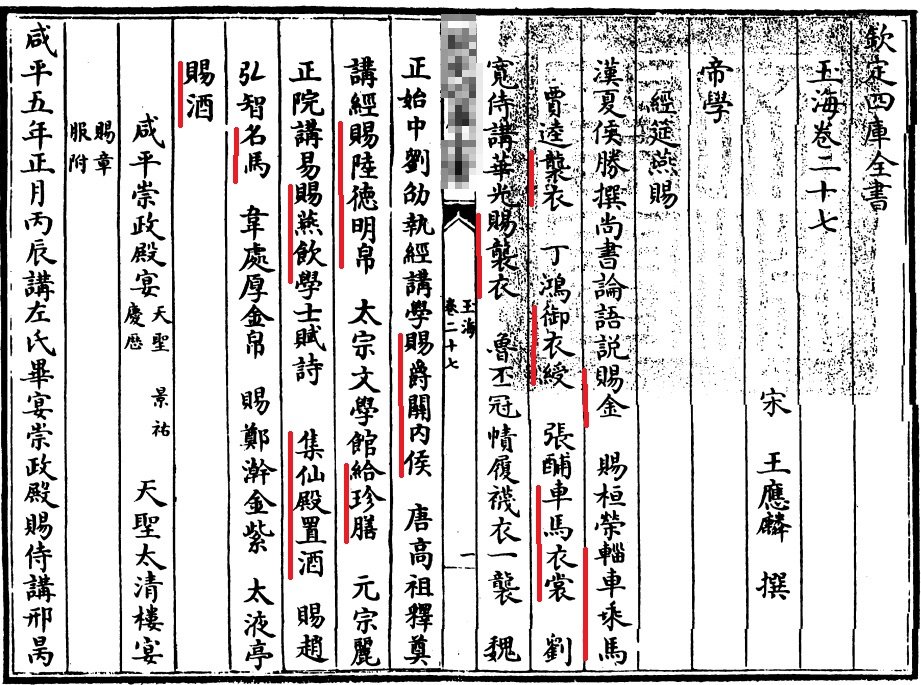 欽定四庫全書
玉海卷二十七
宋 王應麟 撰
帝學
經筵燕賜
漢夏侯勝撰尚書論語說賜金 賜桓榮輜車乘馬
賈逵襲衣 丁鴻御衣綬 張酺車馬衣裳 劉
寬侍講華光賜襲衣 魯丕冠幘履襪衣一襲 魏
玉海
卷二十七
一
正始中劉劭執經講學賜爵關內侯 唐高祖釋奠
講經賜陸德明帛 太宗文學館給珍膳 元宗麗
正院講易賜燕飲學士賦詩 集仙殿置酒 賜趙
弘智名馬 韋處厚金帛 賜鄭澣金紫 太液亭
賜酒
咸平崇政殿宴 天聖 景祐
慶厯
天聖太清樓宴
賜章
服附
咸平五年正月丙辰講左氏畢宴崇政殿賜侍講邢昺